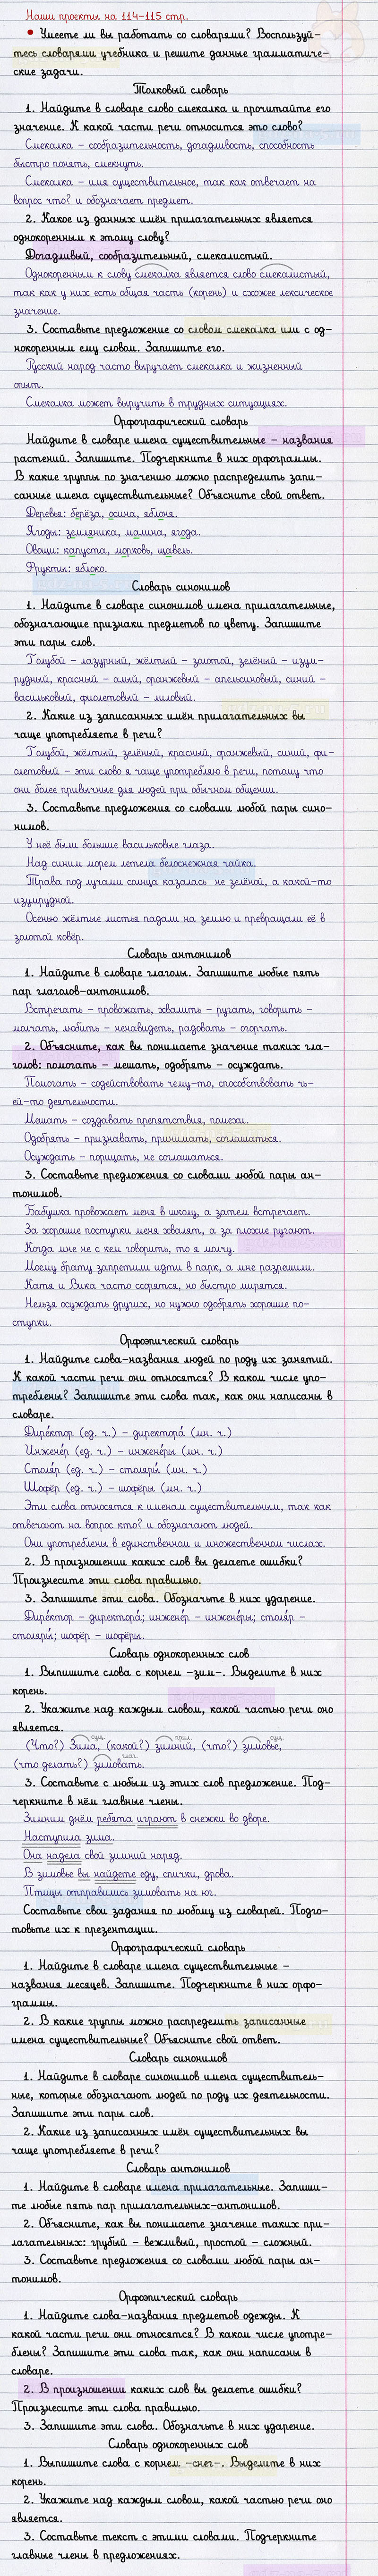 Наши проекты на 114-115 стр.
• Умеете ли вы работать со словарями? Воспользуй-
тесь словарями учебника и решите данные грамматиче-
ские задачи.
Толковый словарь
1. Найдите в словаре слово смекалка и прочитайте его
значение. К какой части речи относится это слово?
Смекалка – сообразительность, догадливость, способность
быстро понять, смекнуть.
Смекалка – имя существительное, так как отвечает на
вопрос что? и обозначает предмет.
2. Какое из данных имён прилагательных является
однокоренным к этому слову?
Догадливый, сообразительный, смекалистый.
Однокоренным к слову смекалка является слово смекалистый,
так как у них есть общая часть (корень) и схожее лексическое
значение.
3. Составьте предложение со словом смекалка или с од-
нокоренным ему словом. Запишите его.
Русский народ часто выручает смекалка и жизненный
опыт.
Смекалка может выручить в трудных ситуациях.
Орфографический словарь
Найдите в словаре имена существительные – названия
растений. Запишите. Подчеркните в них орфограммы.
В какие группы по значению можно распределить запи-
санные имена существительные? Объясните свой ответ.
Деревья: берёза, осина, яблоня.
Ягоды: земляника, малина, ягода.
Овощи: капуста, морковь, щавель.
Фрукты: яблоко.
Словарь синонимов
1. Найдите в словаре синонимов имена прилагательные,
обозначающие признаки предметов по цвету. Запишите
эти пары слов.
Голубой – лазурный, жёлтый – золотой, зелёный – изум-
рудный, красный – алый, оранжевый – апельсиновый, синий –
васильковый, фиолетовый – лиловый.
2. Какие из записанных имён прилагательных вы
чаще употребляете в речи?
Голубой, жёлтый, зелёный, красный, оранжевый, синий, фи-
олетовый – эти слова я чаще употребляю в речи, потому что
они более привычные для людей при обычном общении.
3. Составьте предложения со словами любой пары сино-
нимов.
У неё были большие васильковые глаза.
Над синим морем летела белоснежная чайка.
Трава под лучами солнца казалась не зелёной, а какой-то
изумрудной.
Осенью жёлтые листья падали на землю и превращали её в
золотой ковёр.
Словарь антонимов
1. Найдите в словаре глаголы. Запишите любые пять
пар глаголов-антонимов.
Встречать – провожать, хвалить – ругать, говорить –
молчать, любить – ненавидеть, радовать – огорчать.
2. Объясните, как вы понимаете значение таких гла-
голов: помогать – мешать, одобрять – осуждать.
Помогать – содействовать чему-то, способствовать чь-
ей-то деятельности.
Мешать – создавать препятствия, помехи.
Одобрять – признавать, принимать, соглашаться.
Осуждать – порицать, не соглашаться.
3. Составьте предложения со словами любой пары ан-
тонимов.
Бабушка провожает меня в школу, а затем встречает.
За хорошие поступки меня хвалят, а за плохие ругают.
Когда мне не с кем говорить, то я молчу.
Моему брату запретили идти в парк, а мне разрешили.
Катя и Вика часто ссорятся, но быстро мирятся.
Нельзя осуждать других, но нужно одобрять хорошие по-
ступки.
Орфоэпический словарь
1. Найдите слова-названия людей по роду их занятий.
К какой части речи они относятся? В каком числе упо-
треблены? Запишите эти слова так, как они написаны в
словаре.
Дире́ктор (ед. ч.) – директора́ (мн. ч.)
Инжене́р (ед. ч.) – инжене́ры (мн. ч.)
Столя́р (ед. ч.) – столяры́ (мн. ч.)
Шофёр (ед. ч.) – шофёры (мн. ч.)
Эти слова относятся к именам существительным, так как
отвечают на вопрос кто? и обозначают людей.
Они употреблены в единственном и множественном числах.
2. В произношении каких слов вы делаете ошибки?
Произнесите эти слова правильно.
3. Запишите эти слова. Обозначьте в них ударение.
Дире́ктор – директора́; инжене́р – инжене́ры; столя́р –
столяры́; шофёр – шофёры.
Словарь однокоренных слов
1. Выпишите слова с корнем -зим-. Выделите в них
корень.
2. Укажите над каждым словом, какой частью речи оно
является.
сущ. прил. сущ.
(Что?) Зима, (какой?) зимний, (что?) зимовье,
глаг.
(что делать?) зимовать.
3. Составьте с любым из этих слов предложение. Под-
черкните в нём главные члены.
Зимним днём ребята играют в снежки во дворе.
Наступила зима.
Она надела свой зимний наряд.
В зимовье вы найдете еду, спички, дрова.
Птицы отправились зимовать на юг.
Составьте свои задания по любому из словарей. Подго-
товьте их к презентации.
Орфографический словарь
1. Найдите в словаре имена существительные –
названия месяцев. Запишите. Подчеркните в них орфо-
граммы.
2. В какие группы можно распределить записанные
имена существительные? Объясните свой ответ.
Словарь синонимов
1. Найдите в словаре синонимов имена существитель-
ные, которые обозначают людей по роду их деятельности.
Запишите эти пары слов.
2. Какие из записанных имён существительных вы
чаще употребляете в речи?
Словарь антонимов
1. Найдите в словаре имена прилагательные. Запиши-
те любые пять пар прилагательных-антонимов.
2. Объясните, как вы понимаете значение таких при-
лагательных: грубый – вежливый, простой – сложный.
3. Составьте предложения со словами любой пары ан-
тонимов.
Орфоэпический словарь
1. Найдите слова-названия предметов одежды. К
какой части речи они относятся? В каком числе употре-
блены? Запишите эти слова так, как они написаны в
словаре.
2. В произношении каких слов вы делаете ошибки?
Произнесите эти слова правильно.
3. Запишите эти слова. Обозначьте в них ударение.
Словарь однокоренных слов
1. Выпишите слова с корнем -снег-. Выделите в них
корень.
2. Укажите над каждым словом, какой частью речи оно
является.
3. Составьте текст с этими словами. Подчеркните
главные члены в предложениях.